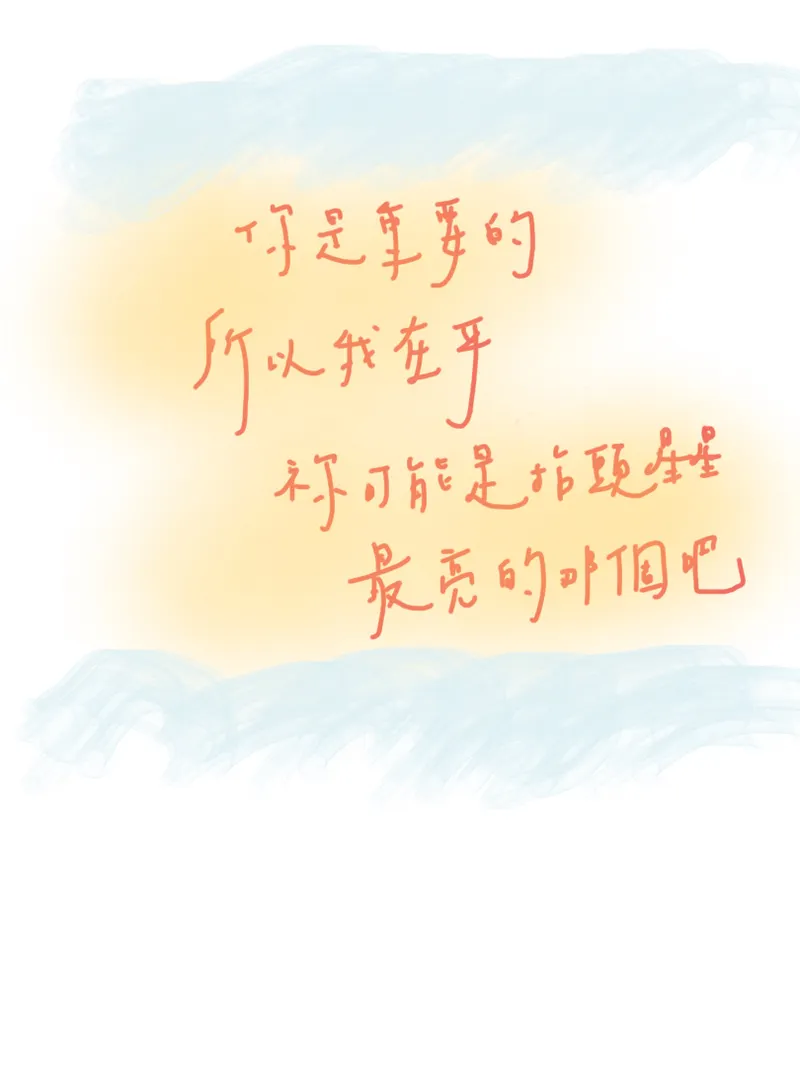 你是重要的
所以我在乎
祢可能是抬頭星星
最亮的那個吧